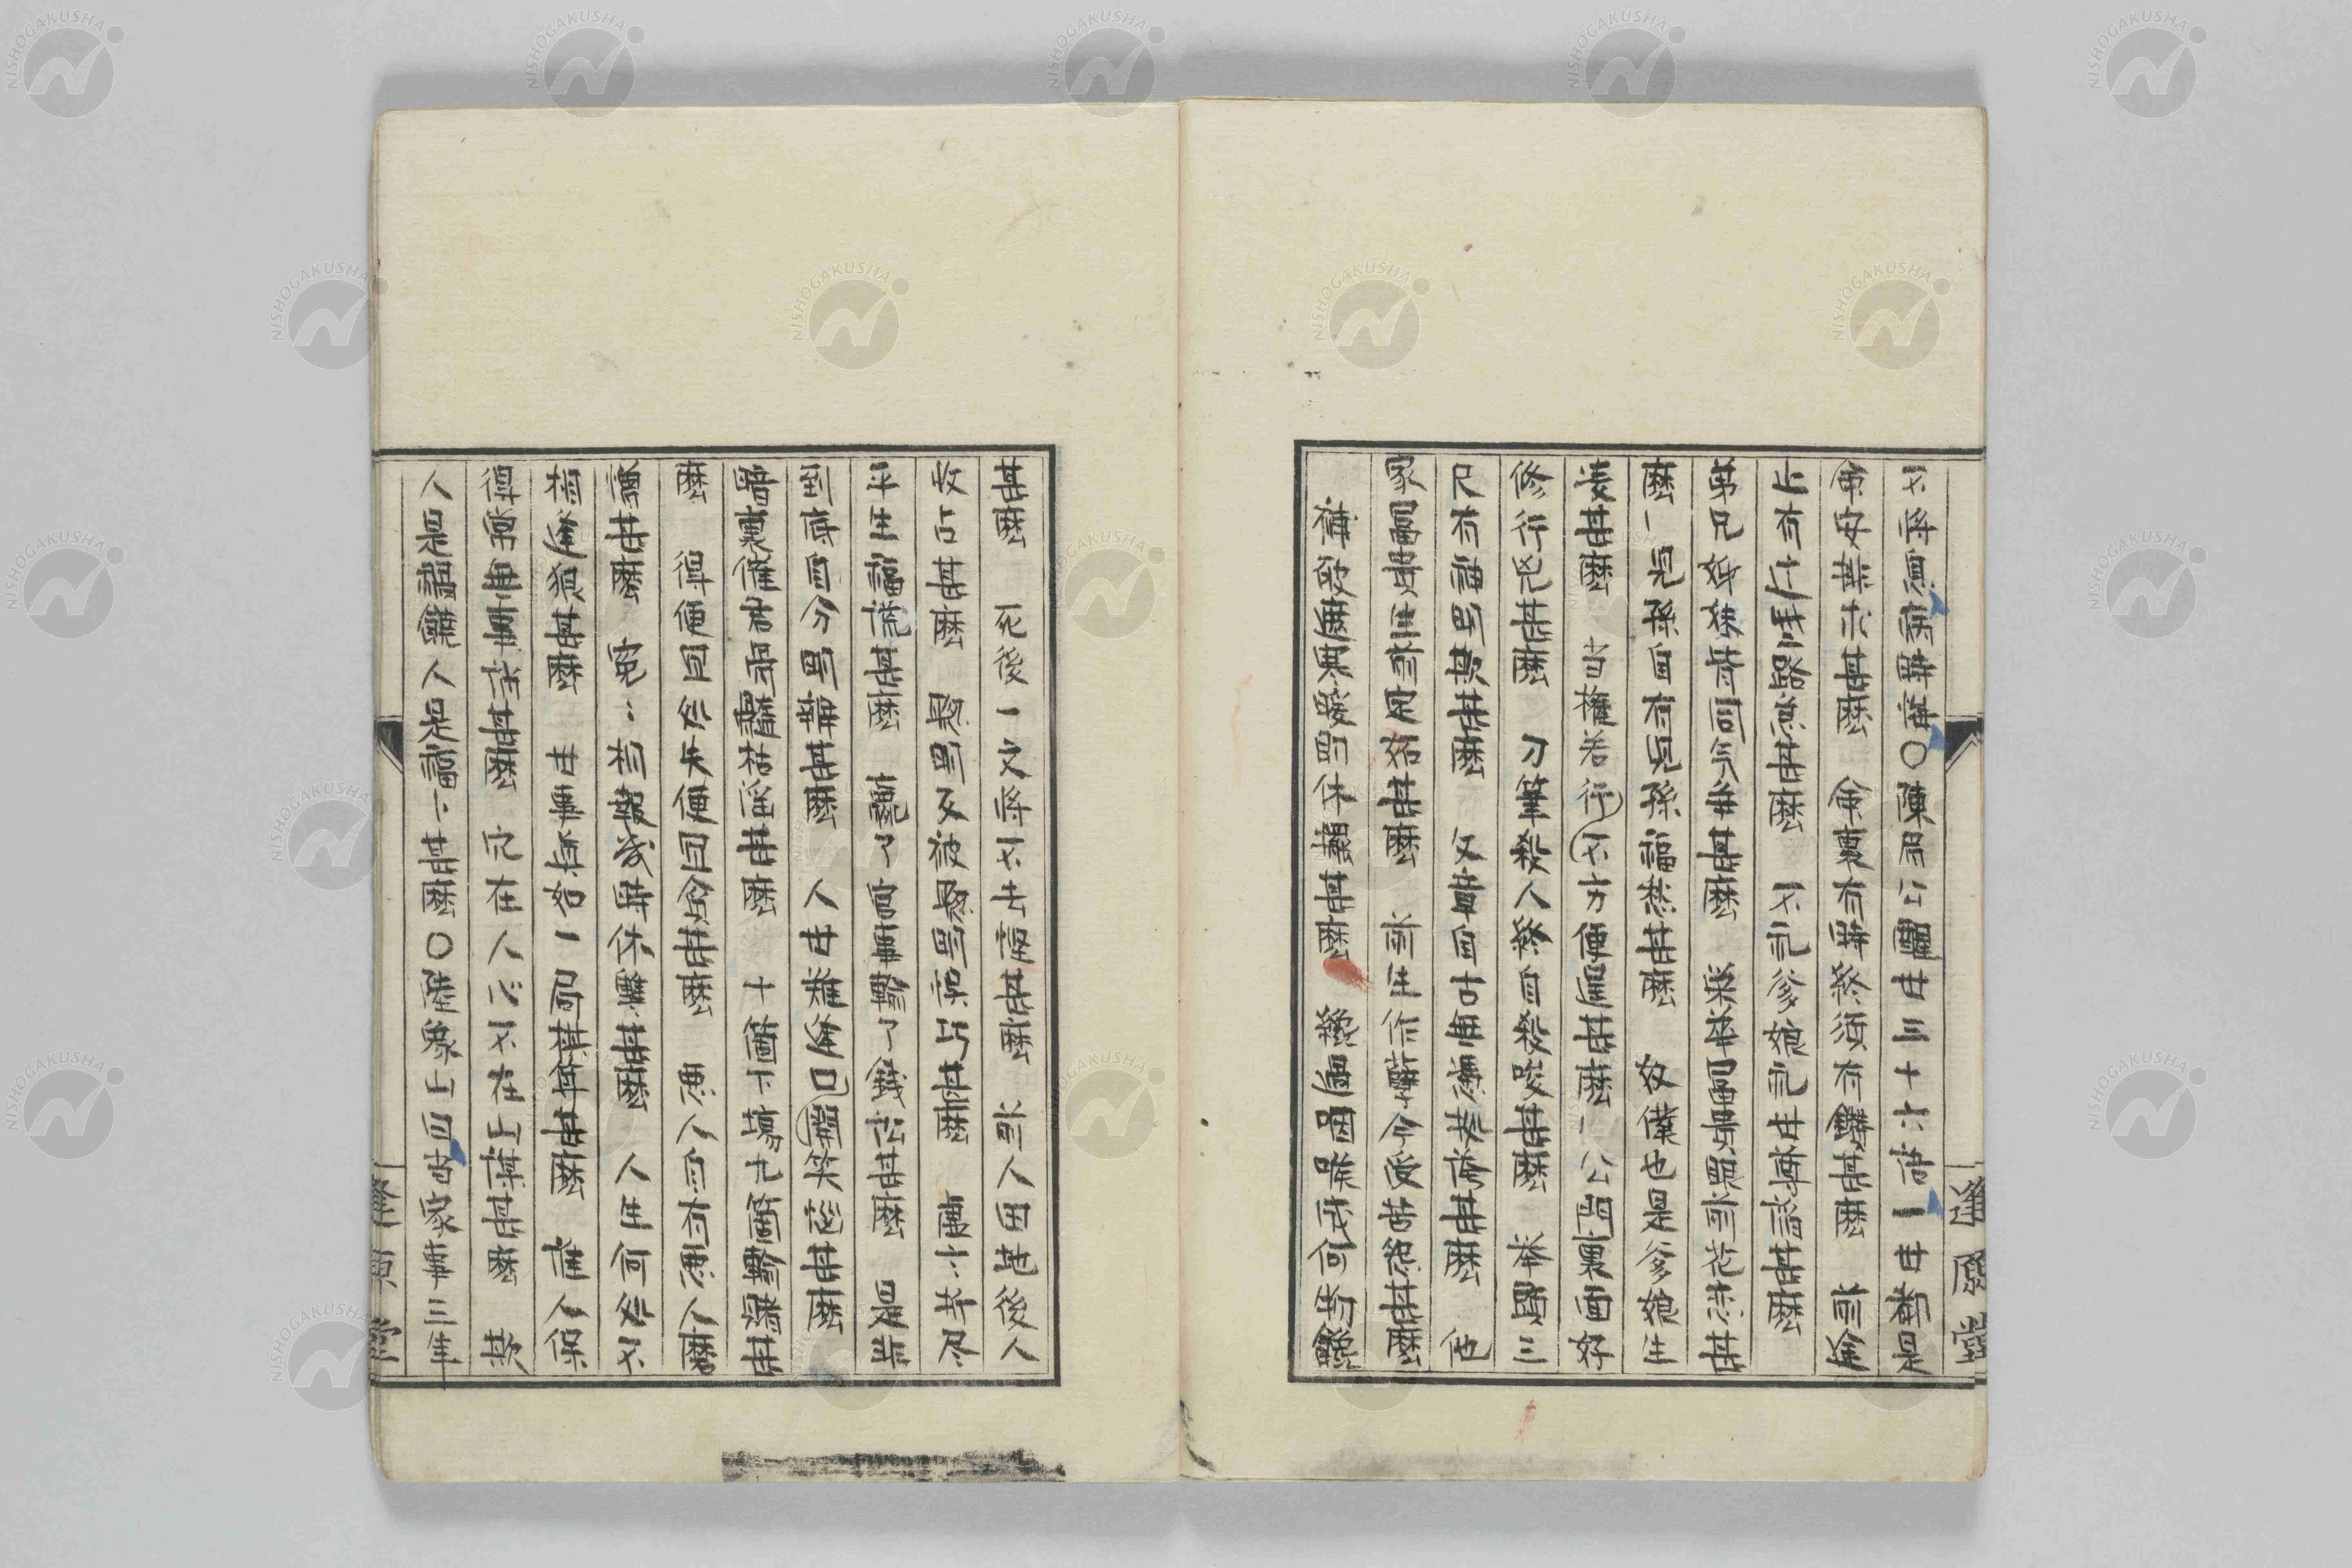 不将息病時悔〇陳眉公醒世三十六悟一世都是
命安排求甚麼　命裏有時終須有鑽甚麼　前途
止有許多路急甚麼　不礼爹娘礼世尊諂甚麼
弟兄姊妹皆同气争甚麼　荣華富貴眼前花恋甚
麼　児孫自有児孫福愁甚麼　奴僕也是爹娘生
凌甚麼　当權若行不方便逞甚麼　公門裏面好
修行兇甚麼　刀筆殺人終自殺唆甚麼　挙頭三
尺有神明欺甚麼　文章自古無憑據誇甚麼　他
家富貴生前定妬甚麼　前生作孽今受苦怨甚麼
補破遮寒暖即休擺甚麼　纔過咽喉成何物饞
甚麼　死後一文将不去慳甚麼　前人田地後人
收占甚麼　聡明反被聡明誤巧甚麼　虚言折尽
平生福謊甚麼　贏了官事輸了錢訟甚麼　是非
到底自分明辯甚麼　人世難逢口開笑惱甚麼
暗裏催君骨髓枯淫甚麼　十箇下場九箇輸賭甚
麼　得便宜処失便宜貪甚麼　悪人自有悪人磨
憎甚麼　寃〻相報幾時休讐甚麼　人生何処不
相逢狠甚麼　世事真如一局棋算甚麼　誰人保
得常無事誚甚麼　穴在人心不在山謀甚麼　欺
人是禍饒人是福卜甚麼〇陸象山曰当家事三年
逢原堂
逢原堂